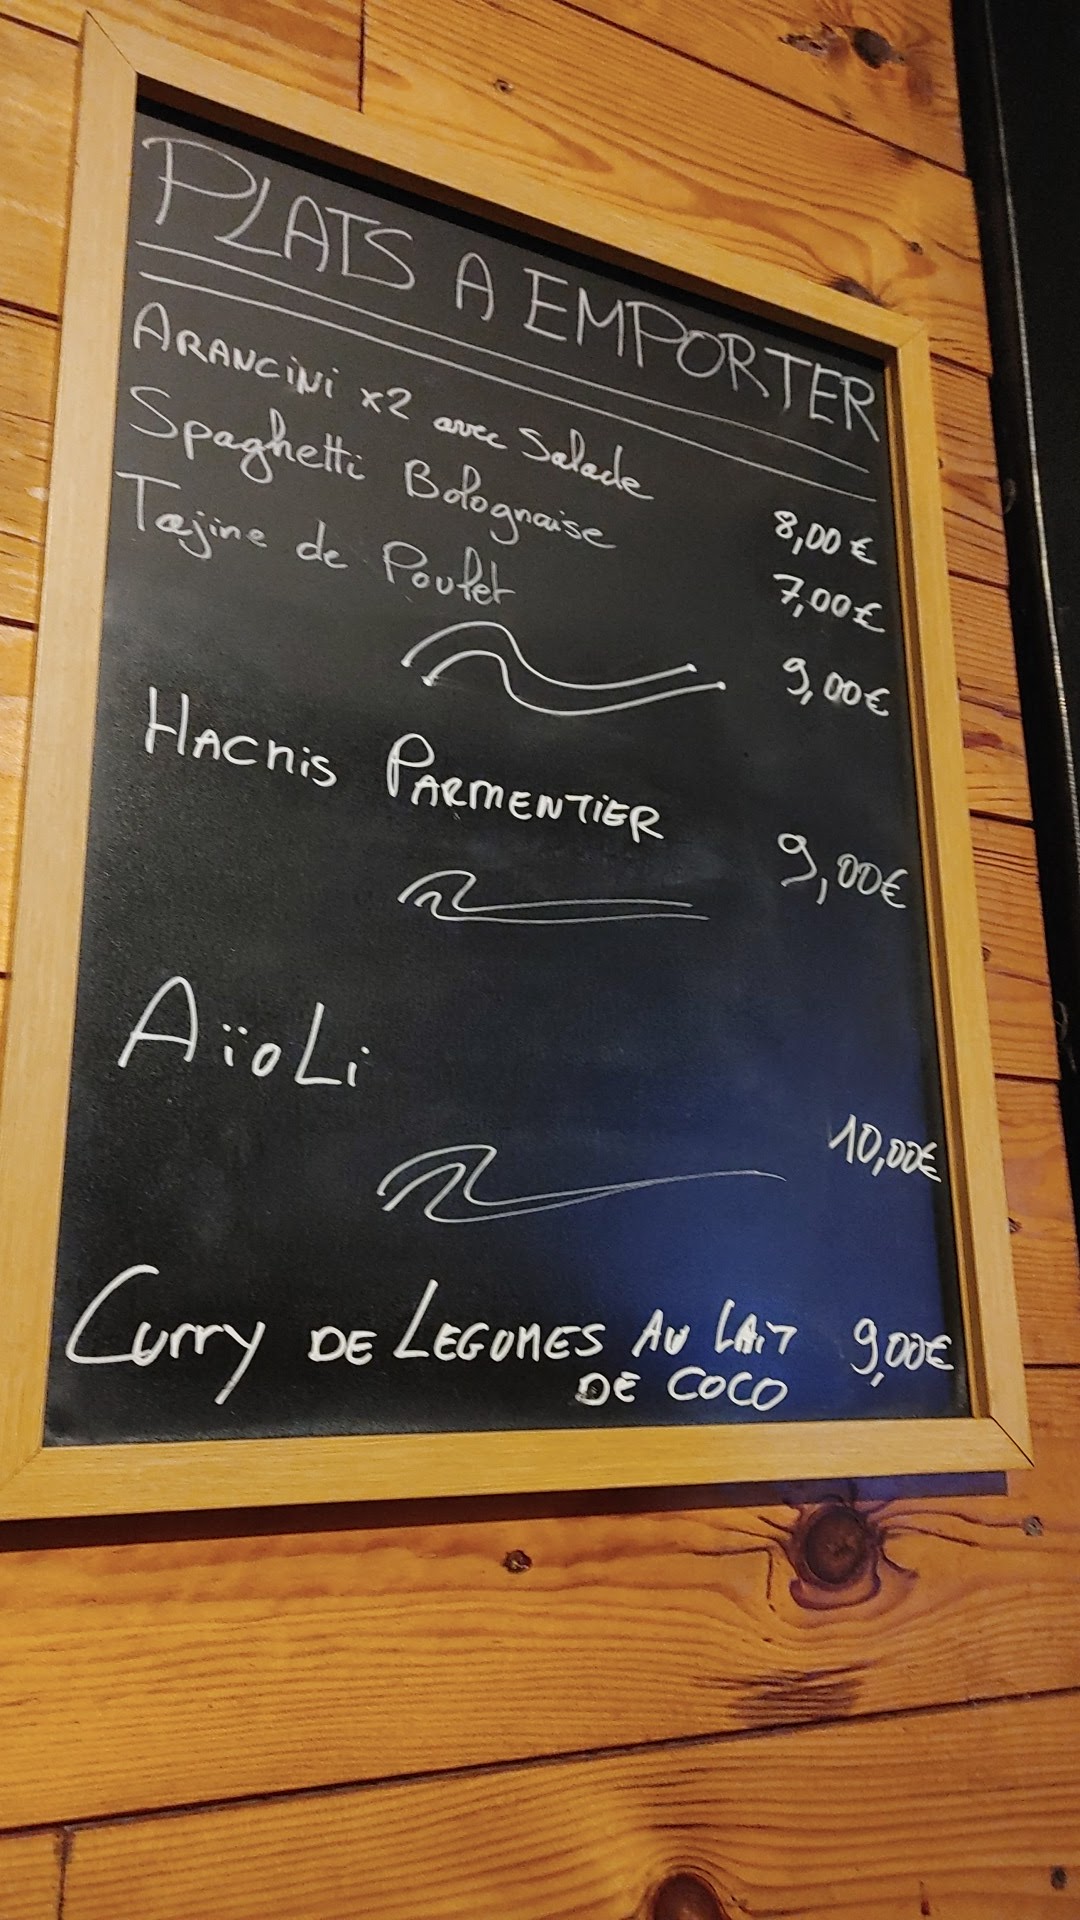 PLATS A EMPORTER
ARANCiNi x2 avec Salade 8,00 €
Spaghetti Bolognaise 7,00 €
Tajine de Poulet 9,00 €
HACHiS PARMENTiER 9,00 €
AïoLi 10,00€
Curry DE LEGUMES AU LAiT 9,00€
DE COCO